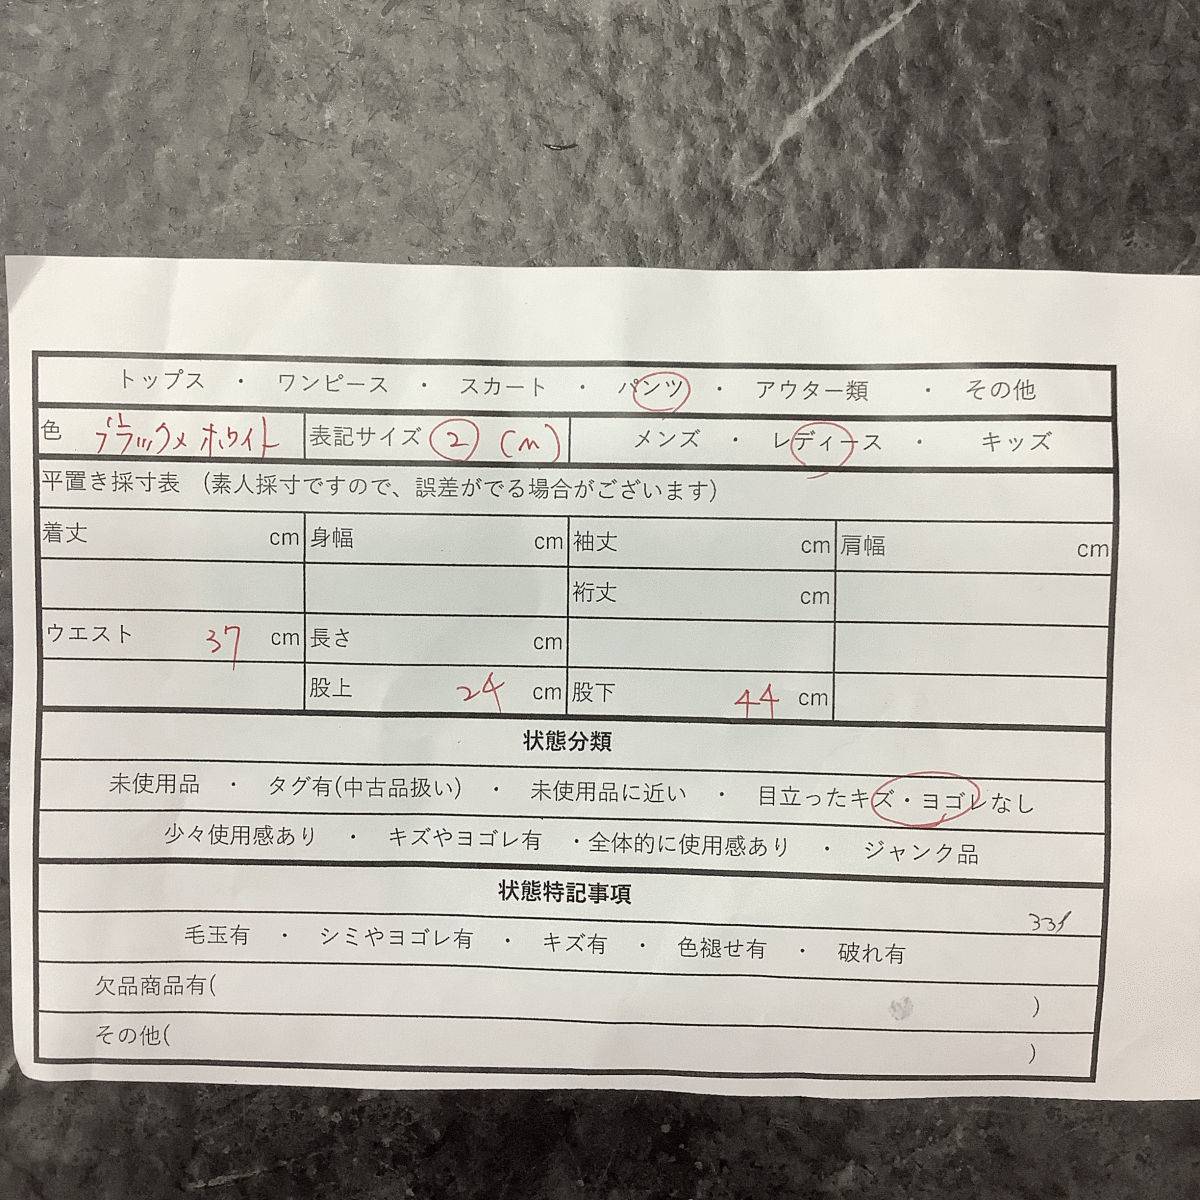 トップス ・ ワンピース ・ スカート ・ パンツ ・ アウター類 ・ その他
色 ブラック×ホワイト 表記サイズ ② (m) メンズ ・ レディース ・ キッズ
平置き採寸表 (素人採寸ですので、誤差がでる場合がございます)
着丈 cm 身幅 cm 袖丈 cm 肩幅 cm
裄丈 cm
ウエスト 37 cm 長さ cm
股上 24 cm 股下 44 cm
状態分類
未使用品 ・ タグ有(中古品扱い) ・ 未使用品に近い ・ 目立ったキズ・ヨゴレなし
少々使用感あり ・ キズやヨゴレ有 ・全体的に使用感あり ・ ジャンク品
状態特記事項
毛玉有 ・ シミやヨゴレ有 ・ キズ有 ・ 色褪せ有 ・ 破れ有
欠品商品有( )
その他( )